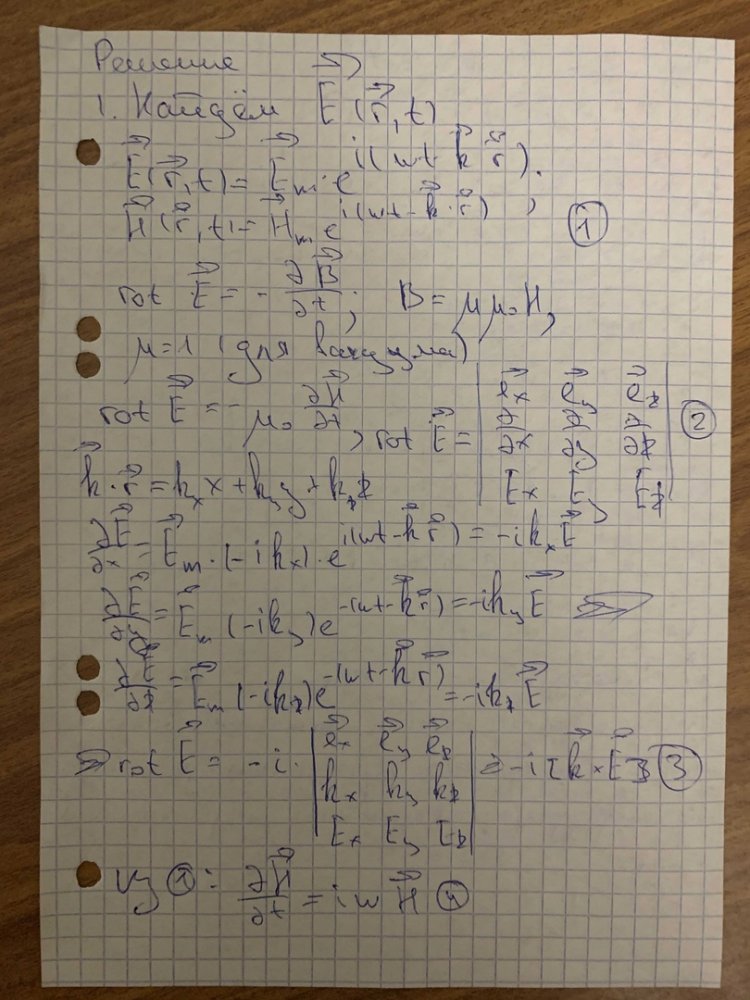 Решение
1. Найдём E⃗(r⃗,t)
E⃗(r⃗,t) = E⃗ₘ·e^{i(ωt-k⃗r⃗)}.
H⃗(r⃗,t) = H⃗ₘ e^{i(ωt-k⃗·r⃗)}, ①
rot E⃗ = -∂B⃗/∂t; B = μμ₀H,
μ=1 (для вакуума)
rot E⃗ = -μ₀ ∂H⃗/∂t, rot E⃗ = |e⃗x e⃗y e⃗z; ∂/∂x ∂/∂y ∂/∂z; Ex Ey Ez| ②
k⃗·r⃗ = kₓx + k_y y + k_z z
∂E⃗/∂x = E⃗ₘ·(-ikₓ)·e^{i(ωt-k⃗r⃗)} = -ikₓE⃗
∂E⃗/∂y = E⃗ₘ(-ik_y)e^{-(ωt-k⃗r⃗)} = -ik_yE⃗
∂E⃗/∂z = E⃗ₘ(-ik_z)e^{-(ωt-k⃗r⃗)} = -ik_zE⃗
⇒ rot E⃗ = -i·|e⃗x e⃗y e⃗z; kx ky kz; Ex Ey Ez| = -i[k⃗×E⃗] ③
Из ①: ∂H⃗/∂t = iωH⃗ ④